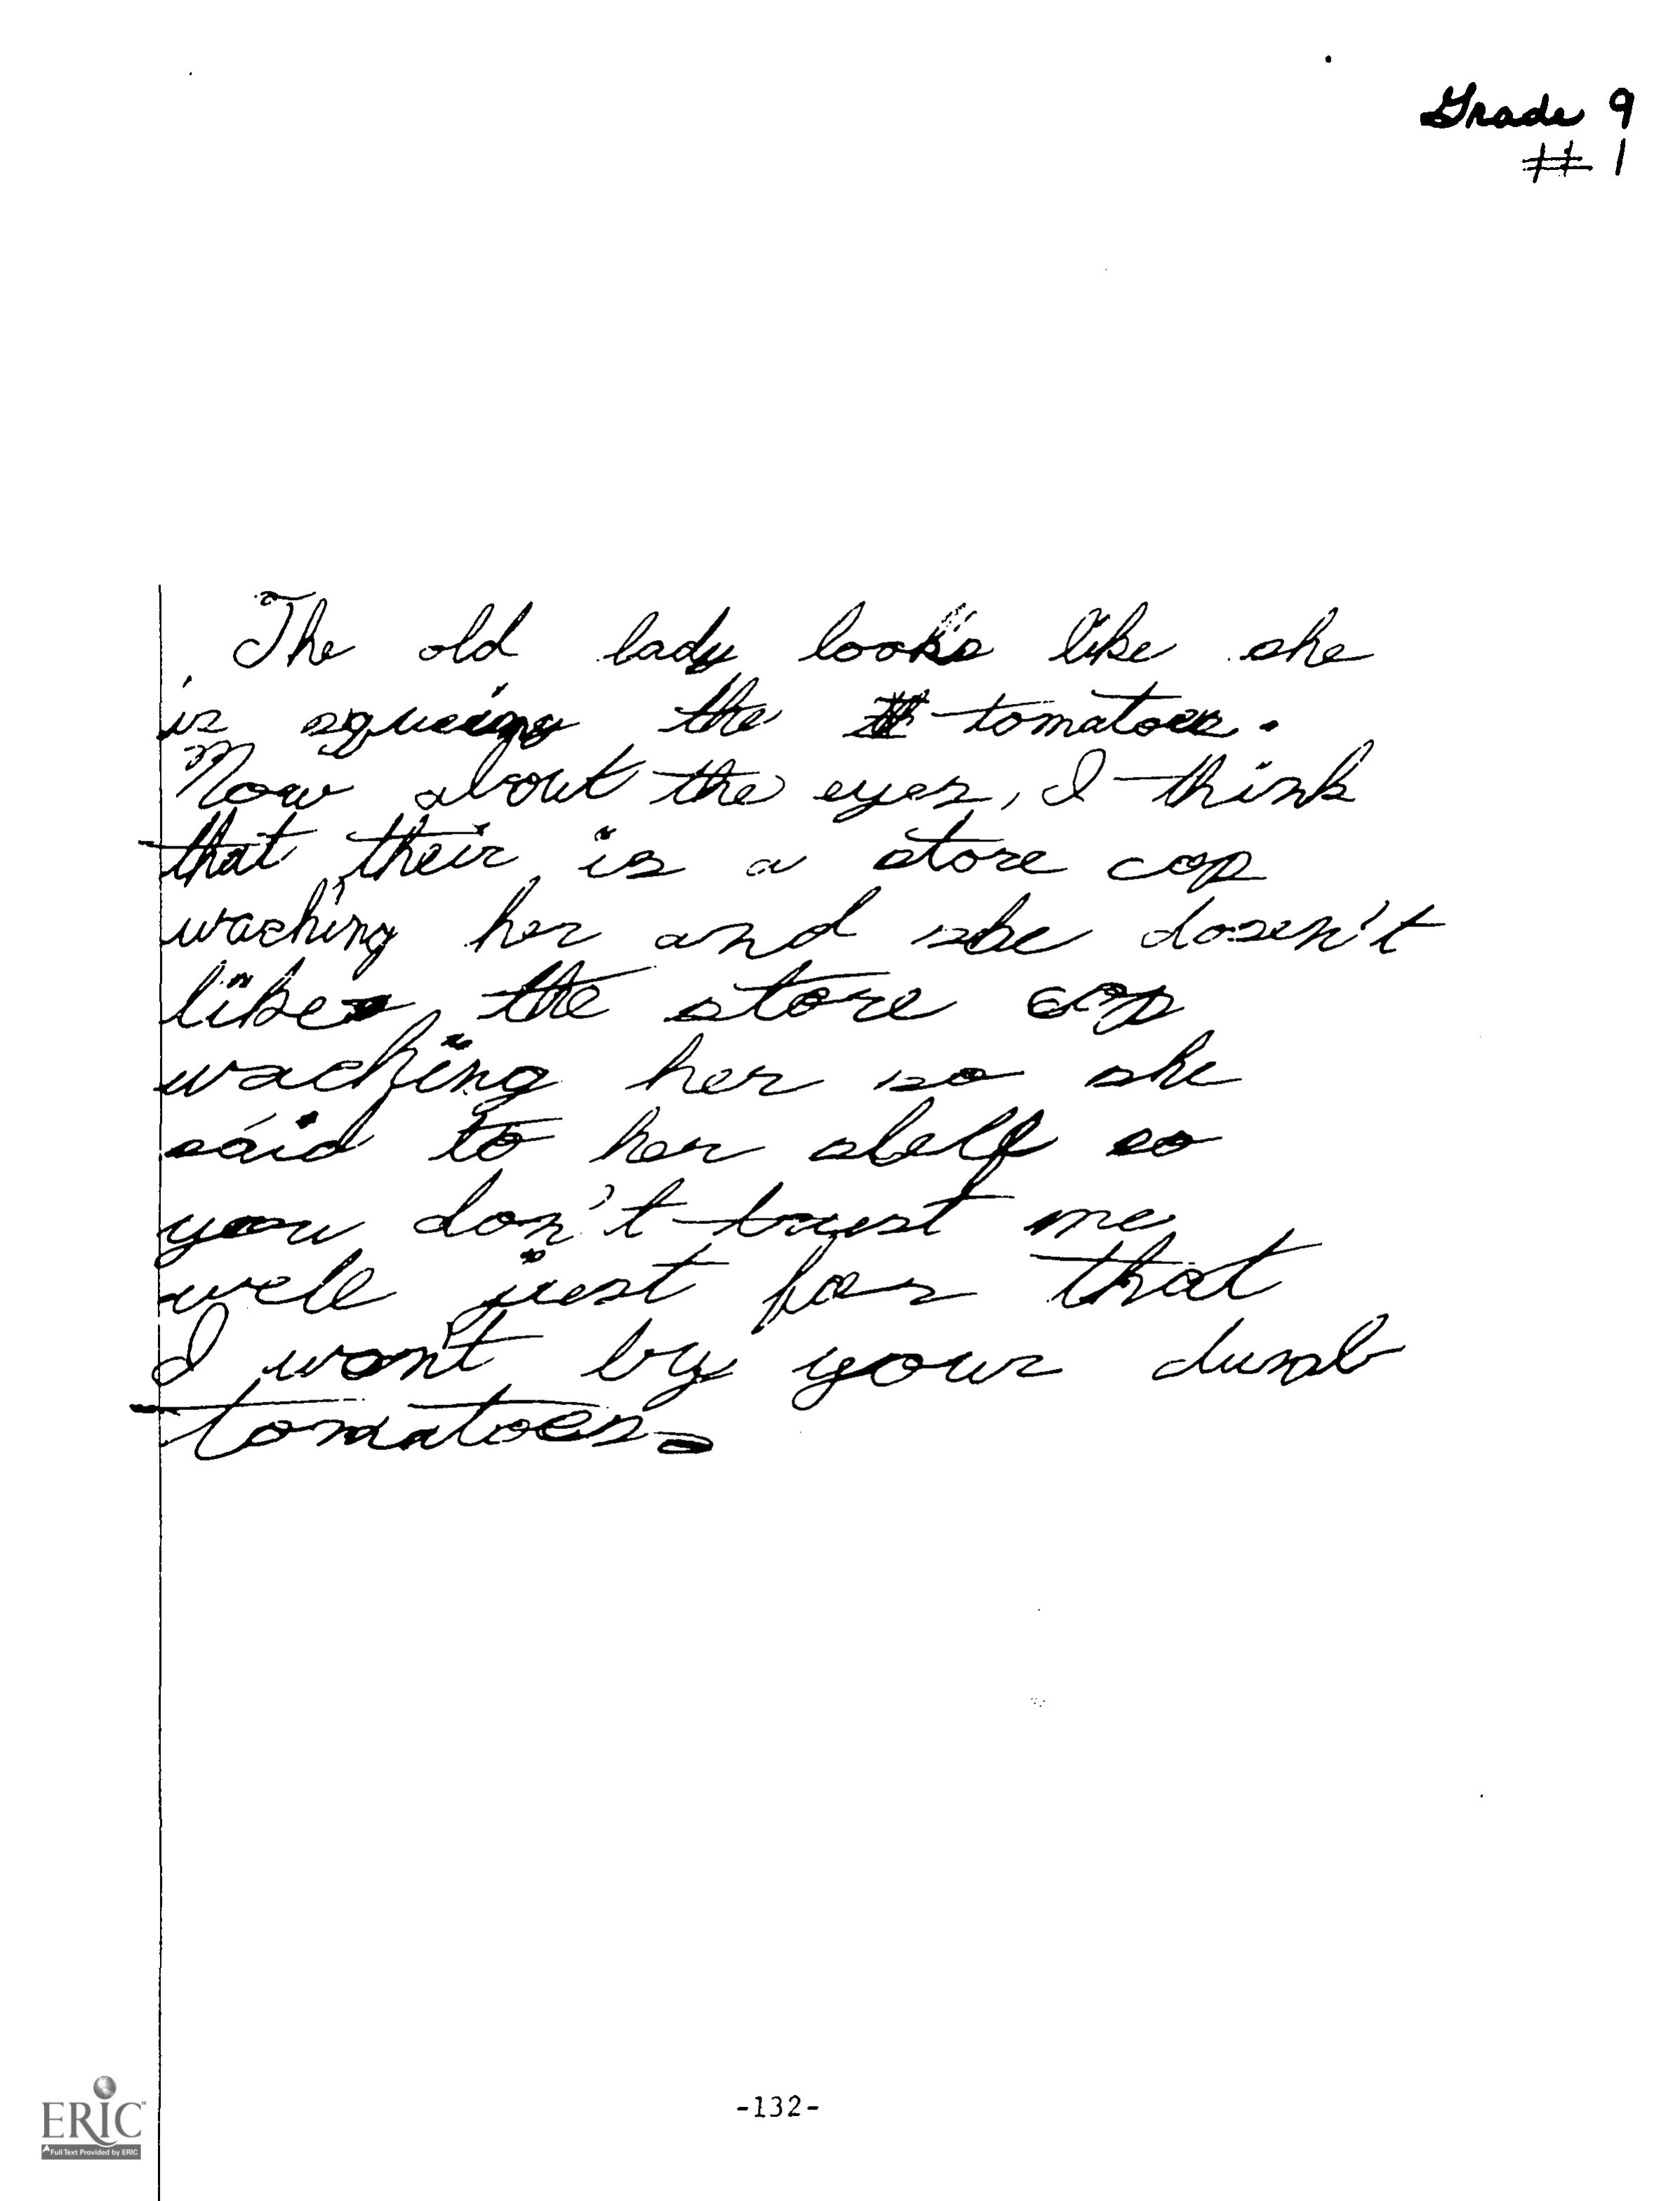 Grade 9
# 1
The old lady looks like she
is squeing the tomatoes.
Now about the eyes, I think
that their is a store cop
waching her and she dosen't
like the store cop
waching her so she
said to her slelf so
you don't trust me
well just for that
I wont by your dumb
tomatoes.
ERIC
Full Text Provided by ERIC
-132-